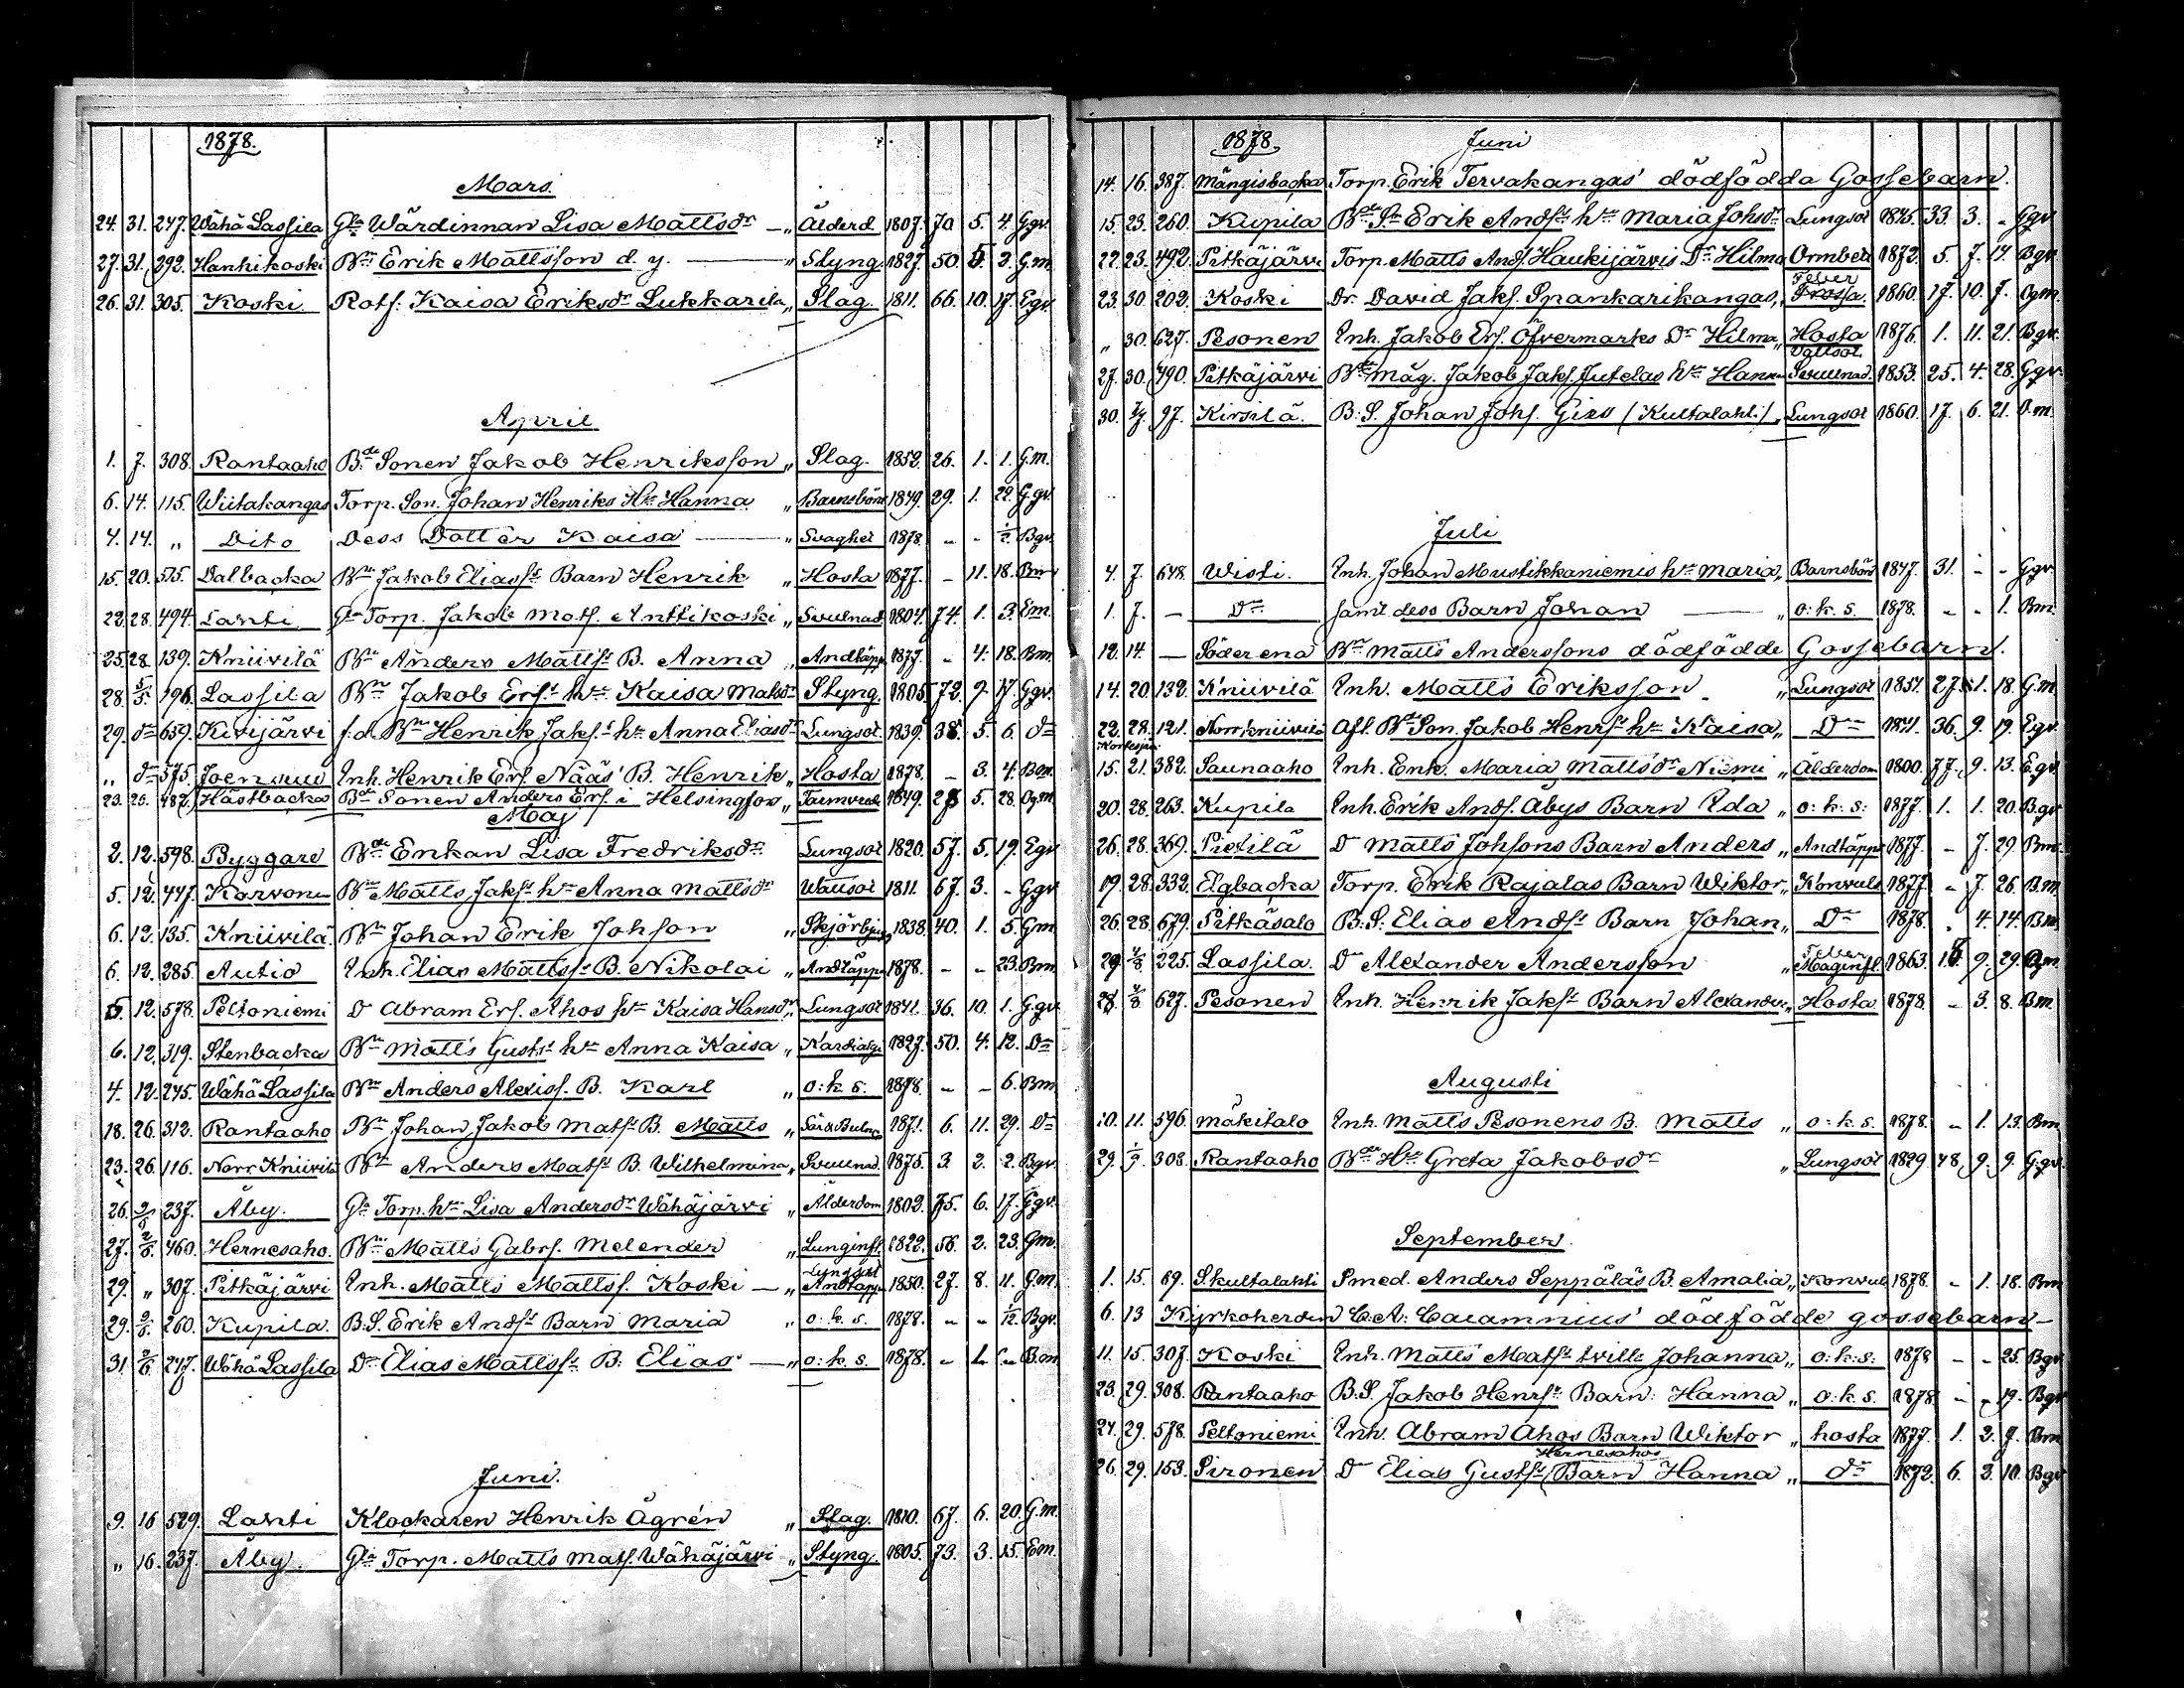 1878.
Mars.
24. 31. 247. Wähä Lassila Gla Wärdinnan Lisa Mattsdr — „ Ålderd. 1807. 70. 5. 4. Ggv.
27. 31. 292. Hanhikoski Bn Erik Mattsson d. y. — „ Styng. 1827. 50. 5. 3. G.m.
26. 31. 305. Koski. Rotf. Kaisa Eriksdr Lukkarila „ Slag. 1811. 66. 10. 17. Egv.
April
1. 7. 308. Rantaaho Bde Sonen Jakob Henriksson „ Slag. 1852. 26. 1. 1. G.m.
6. 14. 115. Wiitakangas Torp. Son. Johan Henriks Hu Hanna „ Barnsbörd 1849. 29. 1. 22. G.gv.
4. 14. „ Dito Dess Dotter Kaisa — „ Svaghet 1878. - - ½ Bgv.
15. 20. 515. Dalbacka Bn Jakob Eliass Barn Henrik „ Hosta 1877. - 11. 18. Bm
22. 28. 494. Lanti Gla Torp. Jakob Mats. Anttikoski „ Svulnad 1804. 74. 1. 3. Em.
25. 28. 139. Kniivilä Bn Anders Mattss B. Anna „ Andtäpp. 1877. - 4. 18. Bm.
28. 5/5. 196. Lassila Bn Jakob Ers. hu Kaisa Matsdr Styng. 1805. 72. 9. 17. Ggv.
29. do 659. Kivijärvi f.d. Bn Henrik Jaks. hu Anna Eliasdr Lungsot. 1839. 38. 5. 6. do
„ do 575. Joensuu Inh. Henrik Ers. Nääs' B. Henrik „ Hosta 1878. - 3. 4. Bm.
23. 482. Hästbacka Bde Sonen Anders Ers. i Helsingfors „ 1849. 28. 5. 28. Ogm.
Maj
2. 12. 598. Byggare Bde Enkan Lisa Fredriksdr Lungsot 1820. 57. 5. 19. Egv.
5. 12. 447. Karvonen Bn Matts Jaks hu Anna Mattsdr Wattsot 1811. 67. 3. - Ggv.
6. 12. 135. Kniivilä. Bn Johan Erik Johson „ 1838. 40. 1. 5. Gm.
6. 12. 285. Autio Inh. Elias Mattss B. Nikolai „ Andtäppa 1878. - - 23. Bm.
5. 12. 578. Peltoniemi D Abram Ers. Ahos hu Kaisa Hansdr. Lungsot 1841. 36. 10. 1. G.gv.
6. 12. 319. Stenbacka Bn Matts Gusts hu Anna Kaisa „ 1827. 50. 4. 12. Do
4. 12. 245. Wähä Lassila Bn Anders Alexiss. B. Karl „ o: k. s. 1878. - - 6. Bm.
18. 26. 312. Rantaaho Bn Johan Jakob Mats B. Matts „ 1871. 6. 11. 29. Do
23. 26. 116. Norr Kniivilä Bn Anders Mats B. Wilhelmina „ Svulnad. 1875. 3. 2. 2. Bgv.
26. 2/6. 237. Åby. Gla Torp. hu Lisa Andersdr Wähäjärvi „ Ålderdom 1802. 75. 6. 17. Ggv.
27. 2/6. 460. Hernesaho. Bn Matts Gabrs. Melender „ Lunginfl. 1822. 56. 2. 23. Gm.
29. „ 307. Pitkäjärvi Inh. Matts Mattss. Koski — „ Lungsot Andtäppa 1850. 27. 8. 11. G.m.
29. 2/6. 260. Kupila. B.S. Erik Ands Barn Maria „ o: k. s. 1878. - - ½. Bgv.
31. 2/6. 247. Wähä Lassila Do Elias Mattss B: Elias — „ o: k. s. 1878. - 1. - B.m.
Juni.
9. 16 529. Lanti Klockaren Henrik Ågrén „ Slag. 1810. 67. 6. 20. G.m.
„ 16. 237. Åby. Gla Torp. Matts Mats. Wähäjärvi „ Styng. 1805. 73. 3. 15. Em.
1878.
Juni
14. 16. 387. Mängisbacka Torp. Erik Tervakangas' dödfödda Gossebarn.
15. 23. 260. Kupila Bde Sn Erik Ands hu Maria Johsdr Lungsot 1845. 33. 3. - Ggv
22. 23. 492. Pitkäjärvi Torp. Matts Ands. Haukijärvis Dr Hilma Ormbett 1872. 5. 7. 17. Bgv.
23. 30. 202. Koski Dr. David Jaks. Spankarikangas „ Feber Frossa. 1860. 17. 10. 7. Ogm.
„ 30. 627. Pesonen Inh. Jakob Ers. Öfvermarks Dr Hilma „ Hosta 1876. 1. 11. 21. Bgv.
27. 30. 490. Pitkäjärvi Bde måg. Jakob Jaks. Jutelas hu Hanna Vattsot. Svullnad. 1853. 25. 4. 28. Ggv.
30. 7/7. 97. Kirsilä. B.S. Johan Johs. Gers (Kultalahti) „ Lungsot 1860. 17. 6. 21. O.m.
Juli
4. 7. 648. Wisti. Inh. Johan Mustikkaniemis hu Maria „ Barnsbörd 1847. 31. - - Ggv.
1. 7. - Do samt dess Barn Johan — „ o: k. s. 1878. - - 1. Bm.
12. 14. — Söderena Bn Matts Anderssons dödfödde Gossebarn.
14. 20. 132. Kniivilä Inh. Matts Eriksson - „ Lungsot 1851. 27. 1. 18. G.m
22. 28. 121. Norrkniivilä Afl. Bde Son. Jakob Henrs hu Kaisa „ Do 1841. 36. 9. 19. Egv.
15. 21. 382. Saunaaho Inh. Enk. Maria Mattsdr Niemi „ Ålderdom 1800. 77. 9. 13. E.gv.
20. 28. 263. Kupila Inh. Erik Ands. Abys Barn Ida „ o: k. s: 1877. 1. 1. 20. B.gv
26. 28. 369. Pietilä D Matts Johsons Barn Anders „ Andtäppa 1877. - 7. 29 Bm.
19. 28. 332. Elgbacka Torp. Erik Rajalas Barn Wiktor „ Konvuls. 1877. - 7. 26. B.m
26. 28. 679. Pitkäsalo B.S: Elias Ands Barn Johan „ Do 1878. . 4. 14. Bm
29 4/8 225. Lassila. Do Alexander Andersson „ Feber Maginfl. 1863. 15. 9. 29. Ogm.
28. 4/8 627. Pesonen Inh. Henrik Jaks Barn Alexander „ Hosta 1878. - 3. 8. Bm.
Augusti
10. 11. 596. Mäkitalo Inh. Matts Pesonens B. Matts „ o: k. s. 1878. - 1. 13. Bm
29. 1/9. 308. Rantaaho Bde Hu Greta Jakobsdr „ Lungsot 1829. 48. 9. 9. G.gv.
September.
1. 15. 69. S.kultalahti Smed. Anders Seppäläs B. Amalia „ Konvuls 1878. - 1. 18. Bm
6. 13 Kyrkoherden C.A: Cacamnius' dödfödde gossebarn —
11. 15. 307. Koski Inh. Matts Mats tvill: Johanna „ o: k: s: 1878 - - 25. Bgv
23. 29. 308. Rantaaho B.S. Jakob Henrs Barn: Hanna „ o: k. s. 1878. - - 19. Bgv
24. 29. 578. Peltoniemi Inh. Abram Ahos Barn Wiktor „ hosta 1877. 1. 2. 7. Bm
Hernesaho
26. 29. 153. Sironen Do Elias Gusts (Barn Hanna „ do 1872. 6. 3. 10. Bgv